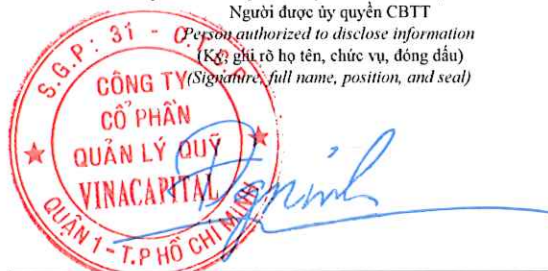 Người được ủy quyền CBTT
Person authorized to disclose information
(Ký, ghi rõ họ tên, chức vụ, đóng dấu)
(Signature, full name, position, and seal)
S.G.P: 31 -
CÔNG TY
CỔ PHẦN
QUẢN LÝ QUỸ
VINACAPITAL
QUẬN 1 - T.P HỒ CHÍ MINH